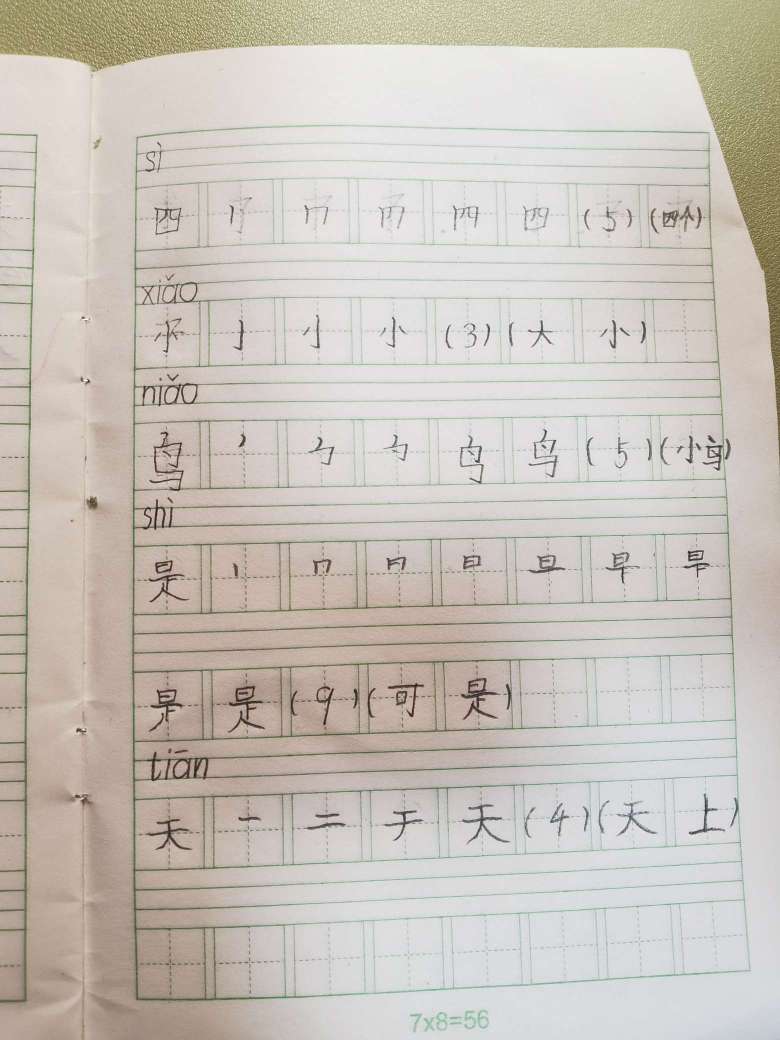 sì
四 丨 冂 冂 四 四 (5) (四个)
xiǎo
小 亅 小 (3) (大 小)
niǎo
鸟 ㇒ 鸟 (5) (小鸟)
shì
是 丨 冂 日 日 旦 早 早
是 是 (9) (可 是)
tiān
天 一 二 于 天 (4) (天 上)
7x8=56